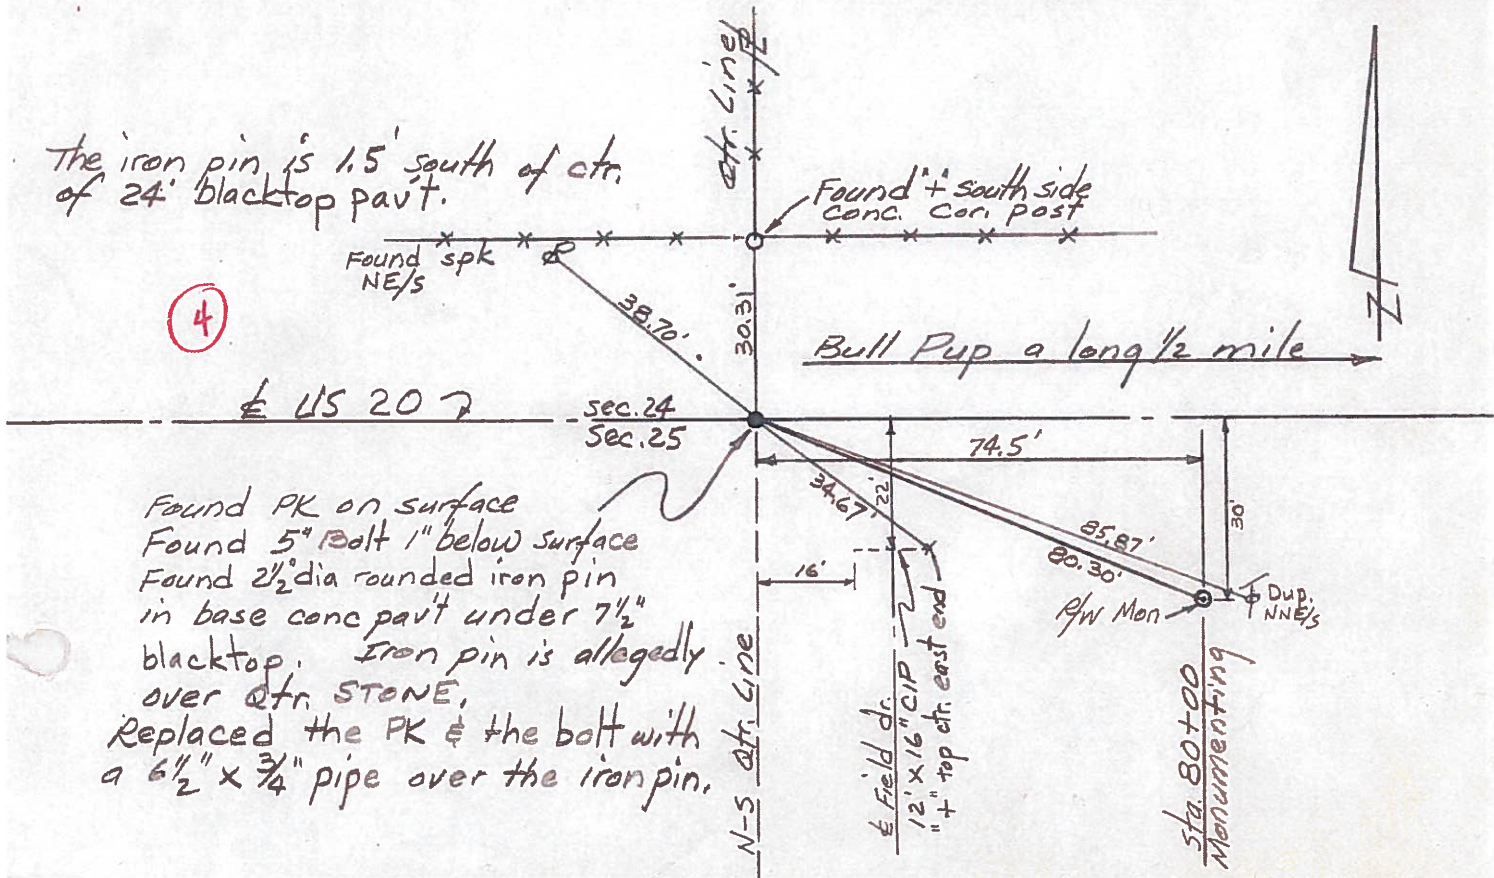 Qtr. Line
PL
The iron pin is 1.5' south of ctr.
of 24' blacktop pav't.
Found "+" south side
conc. cor. post
Found spk
NE/S
38.70'
30.31'
4
N
Bull Pup a long 1/2 mile
℄ US 20
Sec. 24
Sec. 25
74.5'
22'
34.67'
30'
85.87'
80.30'
16'
R/W Mon
Dup.
NNE/S
Found PK on surface
Found 5" Bolt 1" below surface
Found 2½" dia rounded iron pin
in base conc pav't under 7½"
blacktop. Iron pin is allegedly
over Qtr. STONE.
Replaced the PK & the bolt with
a 6½" x ¾" pipe over the iron pin.
N-S Qtr. Line
℄ Field dr.
12' x 16" CIP
"+" top ctr. east end
Sta. 80+00
Monumenting